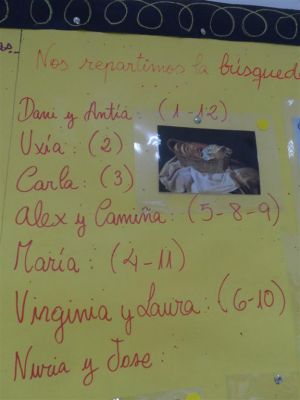 as.
Nos repartimos la búsqued
Dani y Antía: (1-12)
Uxía: (2)
Carla: (3)
Alex y Camiña: (5-8-9)
María: (4-11)
Virginia y Laura: (6-10)
Nuria y Jose: